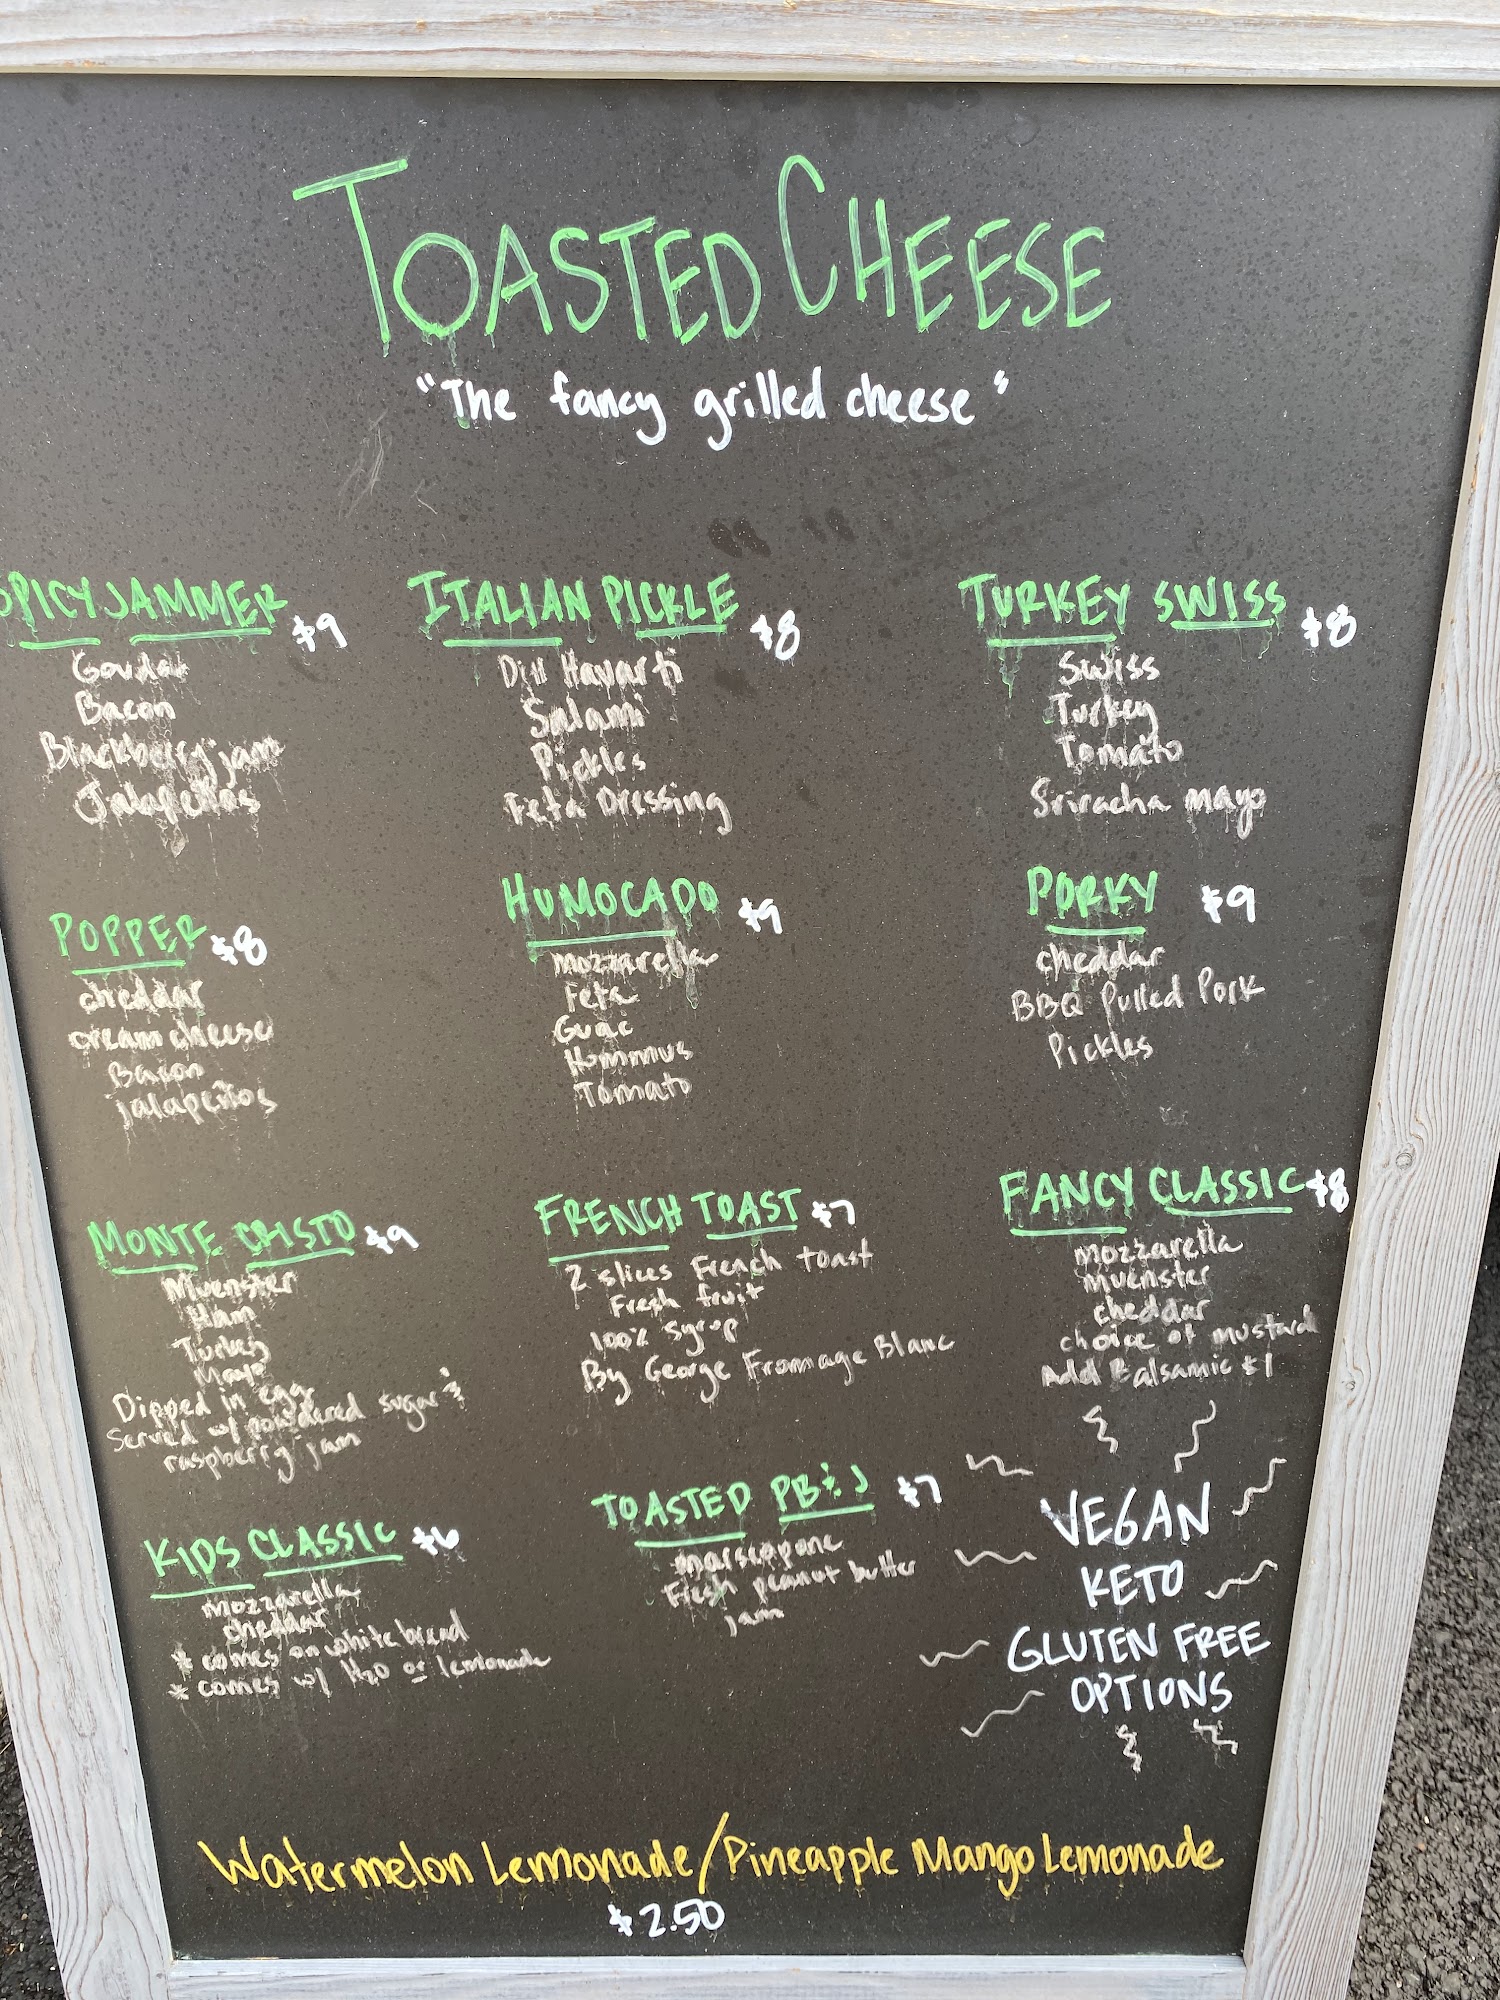 TOASTED CHEESE
"The fancy grilled cheese"
SPICY JAMMER $9
Gouda
Bacon
Blackberry jam
Jalapeños
ITALIAN PICKLE $8
Dill Havarti
Salami
Pickles
Feta Dressing
TURKEY SWISS $8
Swiss
Turkey
Tomato
Sriracha mayo
POPPER $8
cheddar
cream cheese
Bacon
jalapeños
HUMOCADO $9
mozzarella
Feta
Guac
Hummus
Tomato
PORKY $9
cheddar
BBQ Pulled Pork
Pickles
MONTE CRISTO $9
Muenster
Ham
Turkey
Mayo
Dipped in egg
Served w/ powdered sugar &
raspberry jam
FRENCH TOAST $7
2 slices French toast
Fresh fruit
100% Syrup
By George Fromage Blanc
FANCY CLASSIC $8
mozzarella
muenster
cheddar
choice of mustard
Add Balsamic $1
KIDS CLASSIC $6
mozzarella
cheddar
* comes on white bread
* comes w/ H2O or lemonade
TOASTED PB&J $7
marscapone
Fresh peanut butter
jam
VEGAN
KETO
GLUTEN FREE
OPTIONS
Watermelon Lemonade/Pineapple Mango Lemonade
$2.50